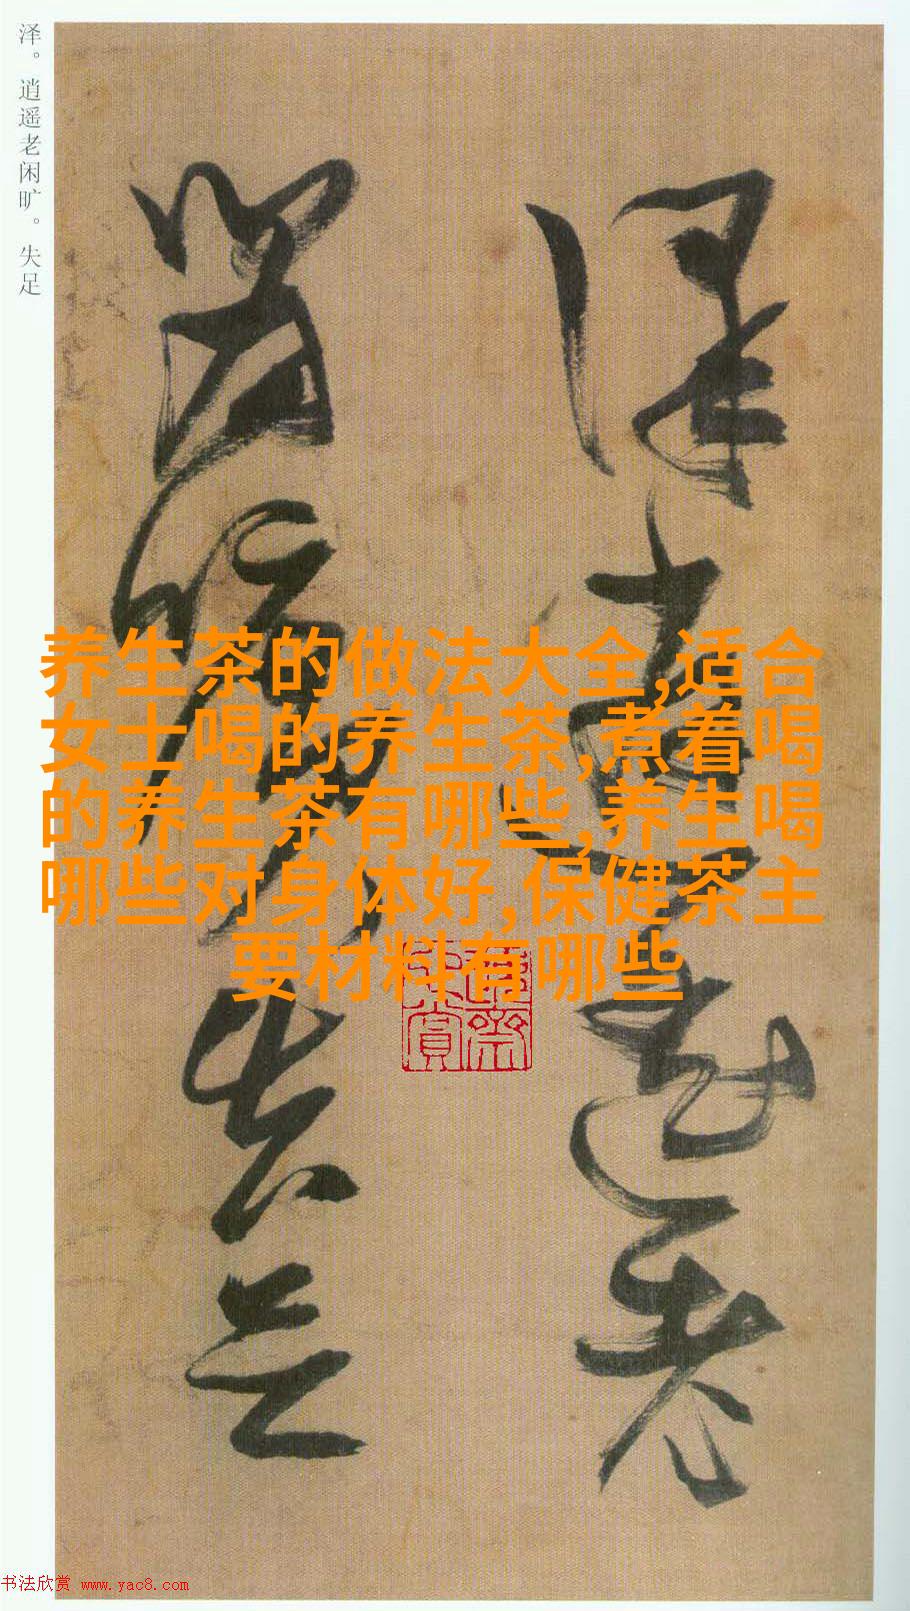 泽。逍遥老闲旷。失足
养生茶的做法大全,适合
女士喝的养生茶,煮着喝
的养生茶有哪些,养生喝
哪些对身体好,保健茶主
要材料有哪些
泽逍遥老
闲旷失足
书法欣赏 www.yac8.com